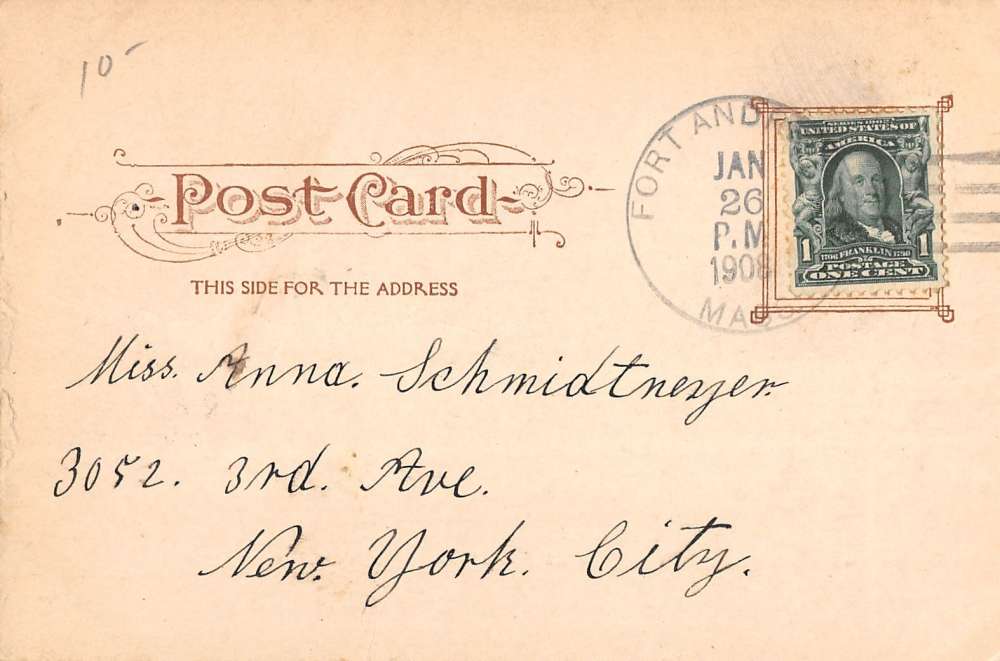 10-
Post Card
THIS SIDE FOR THE ADDRESS
FORT AND
JAN
26
P.M
190
MAS
SERIES 1902
UNITED STATES OF
AMERICA
1 1706 FRANKLIN 1790 1
POSTAGE
ONE CENT
Miss. Anna. Schmidtneyer.
3052. 3rd. Ave.
New. York. City.